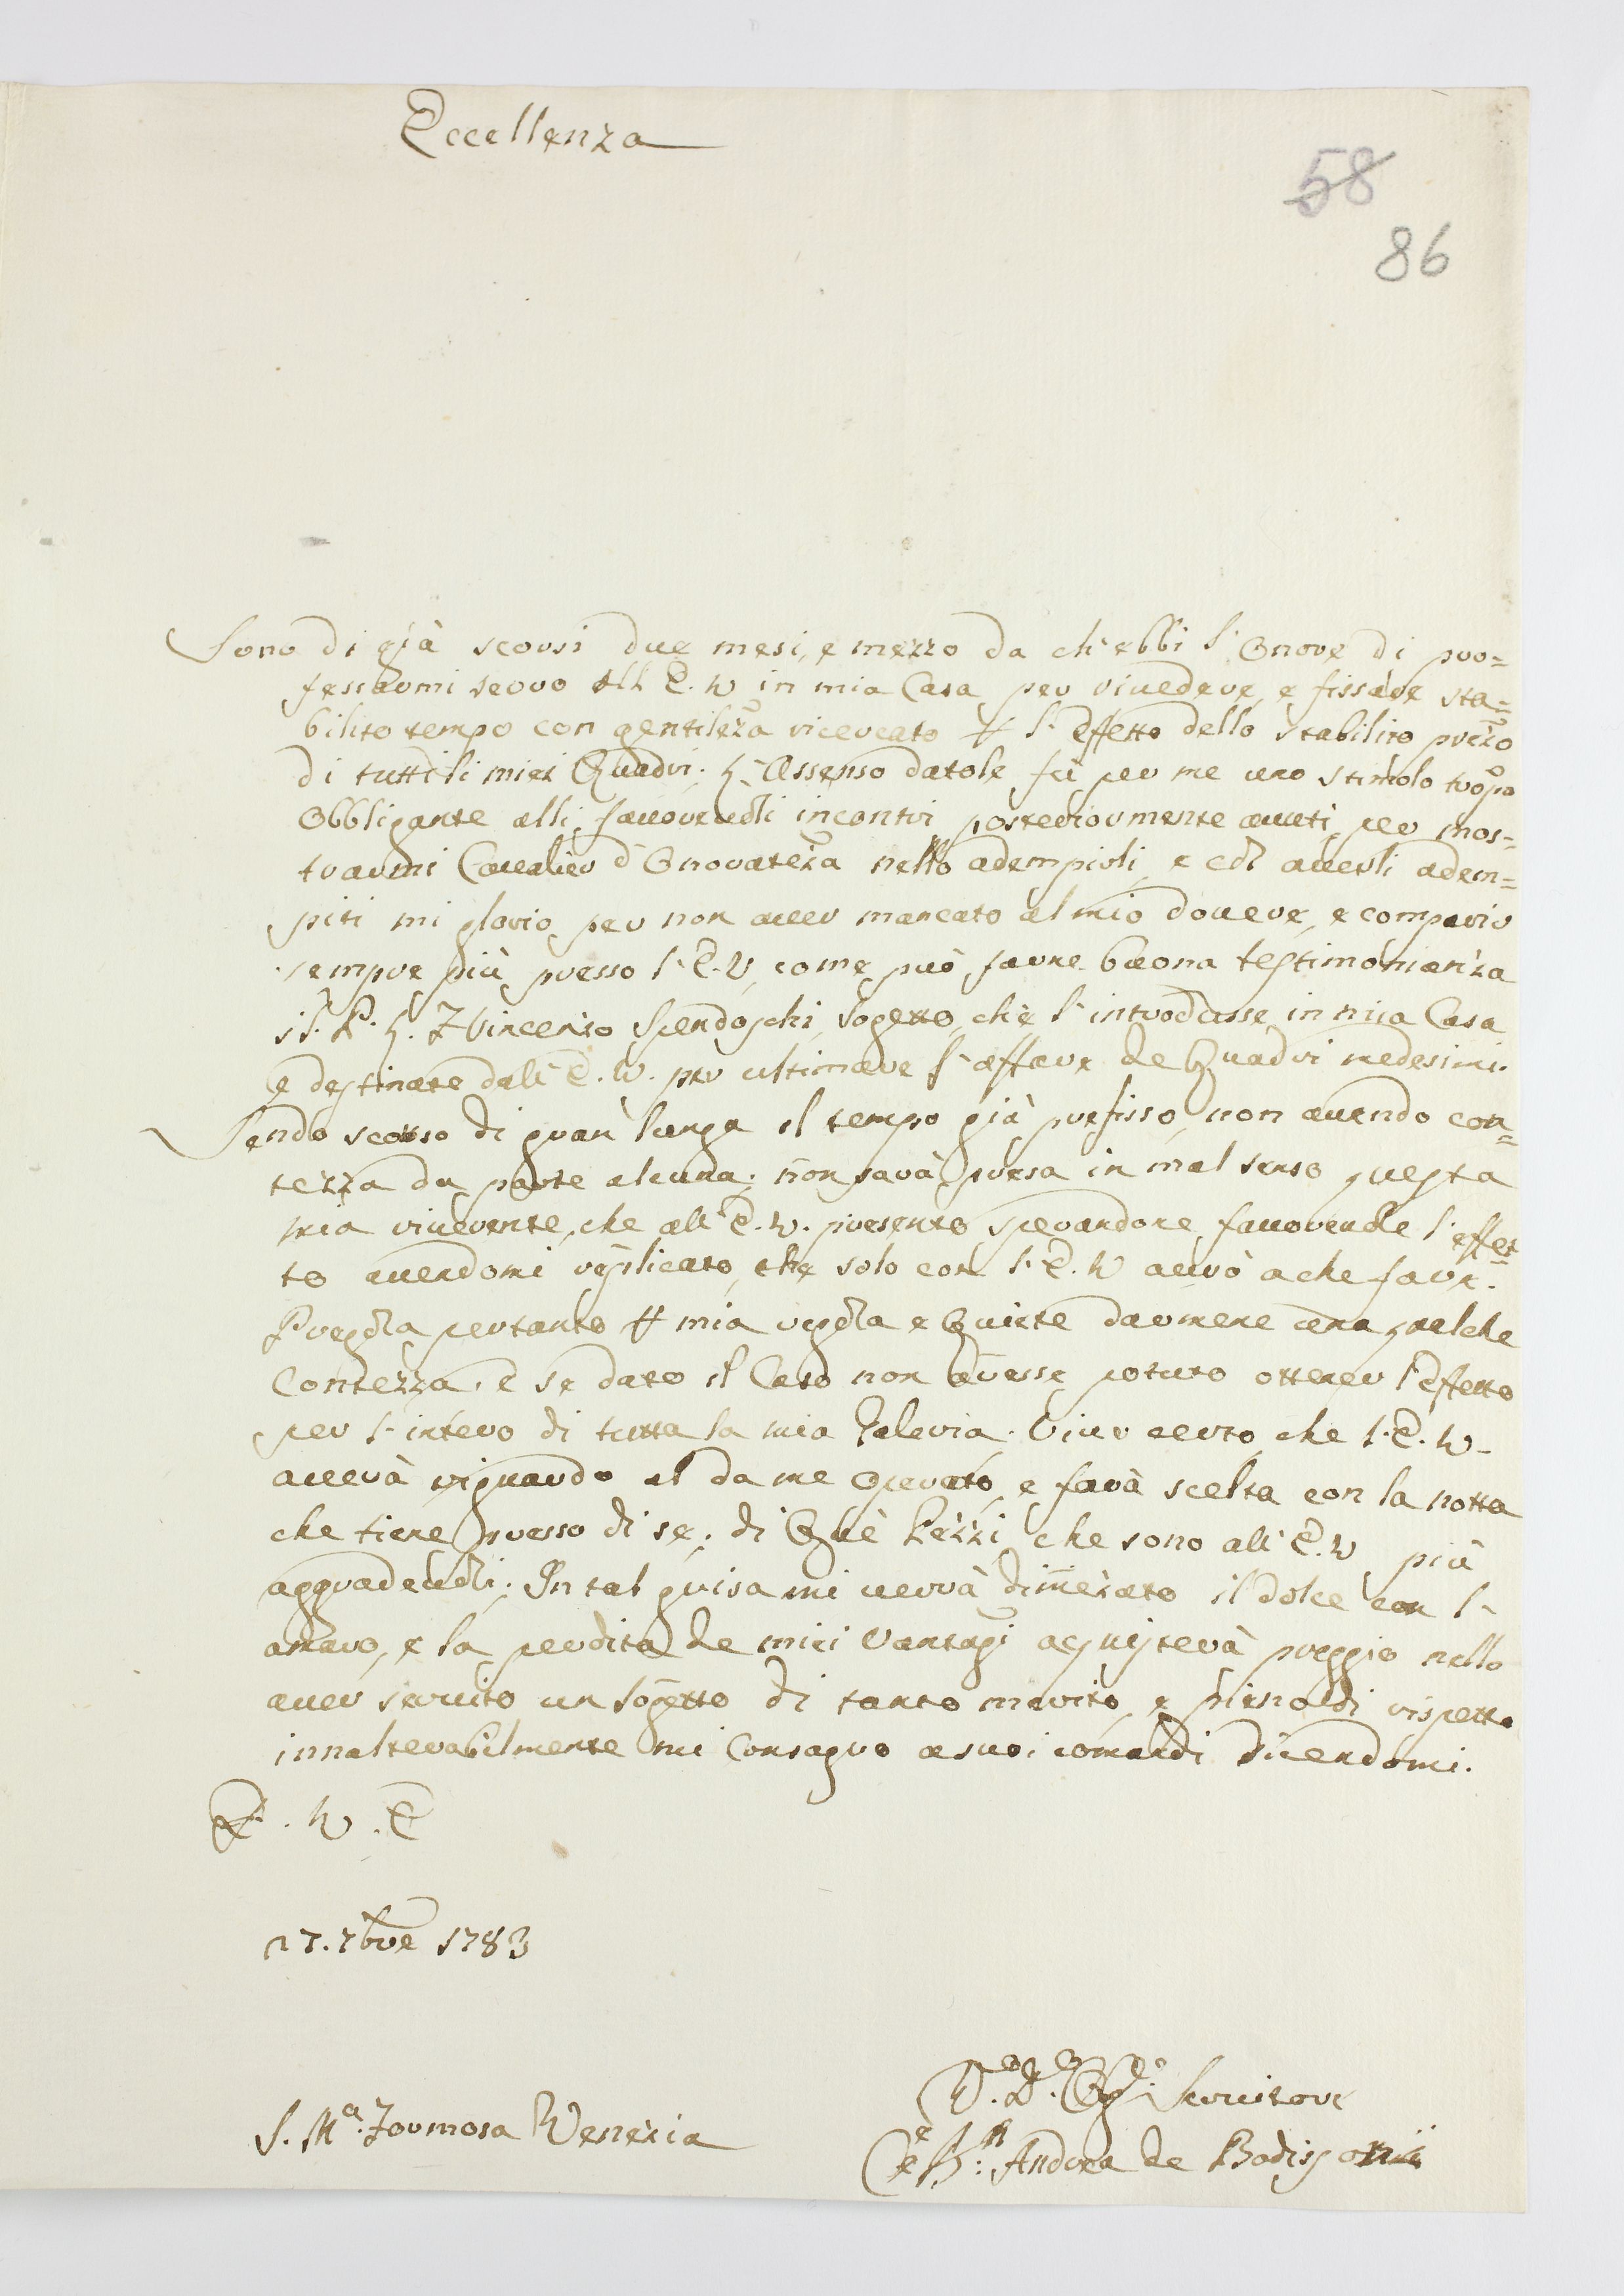 Eccellenza
58
86
Sono di già scorsi due mesi, e mezzo da ch'ebbi l'Onore di pro=
fessarmi servo all'E. V. in mia Casa per rivedere, e fissare sta=
bilito tempo con gentileza ricercato l'effetto dello stabilito prezo
di tutti li miei Quadri. L'Assenso datole fù per me uno stimolo tropo
Obbligante alli favorevoli incontri posteriormente avuti per mos=
trarmi Cavalier d'Onorateza nello adempirli, e coll'averli adem=
piti mi glorio per non aver mancato al mio dovere, e comparir
sempre più presso l'E. V., come può farne buona testimonianza
il P. L. Zvincenzo Scendoschi, Sogetto, che l'introdusse in mia Casa
e destinato dall'E. V. per ultimare l'affare de Quadri medesimi.
Sendo scorso di gran lunga il tempo già prefisso, non avendo con=
tezza da parte alcuna; non sarà presa in mal senso questa
mia riverente, che all'E. V. presento sperandone favorevole l'effet=
to avendomi replicato, che solo con l'E. V. avrò a che fare.
Pregola pertanto mia regola e Quiete darmene una qualche
Contezza, e se dato il Caso non avesse potuto ottener l'effetto
per l'intero di tutta la mia Galeria. Vivo certo, che l'E. V.
averà riguardo al da me Operato, e farà scelta con la notta
che tiene presso di se, di Què Pezzi che sono all'E. V. più
aggradevoli. In tal guisa mi verrà dimezato il dolce con l'
amaro, e la perdita de miei Vantagi aquisterà preggio nello
aver servito un Sogetto di tanto merito, e pieno di rispetto
innalterabilmente mi Consagro a suoi comandi dicendomi.
D. V. E
27. 7bre 1783
S. Ma. Formosa Venezia
D. D. Obb. Servitore
Andrea de Bodissoni